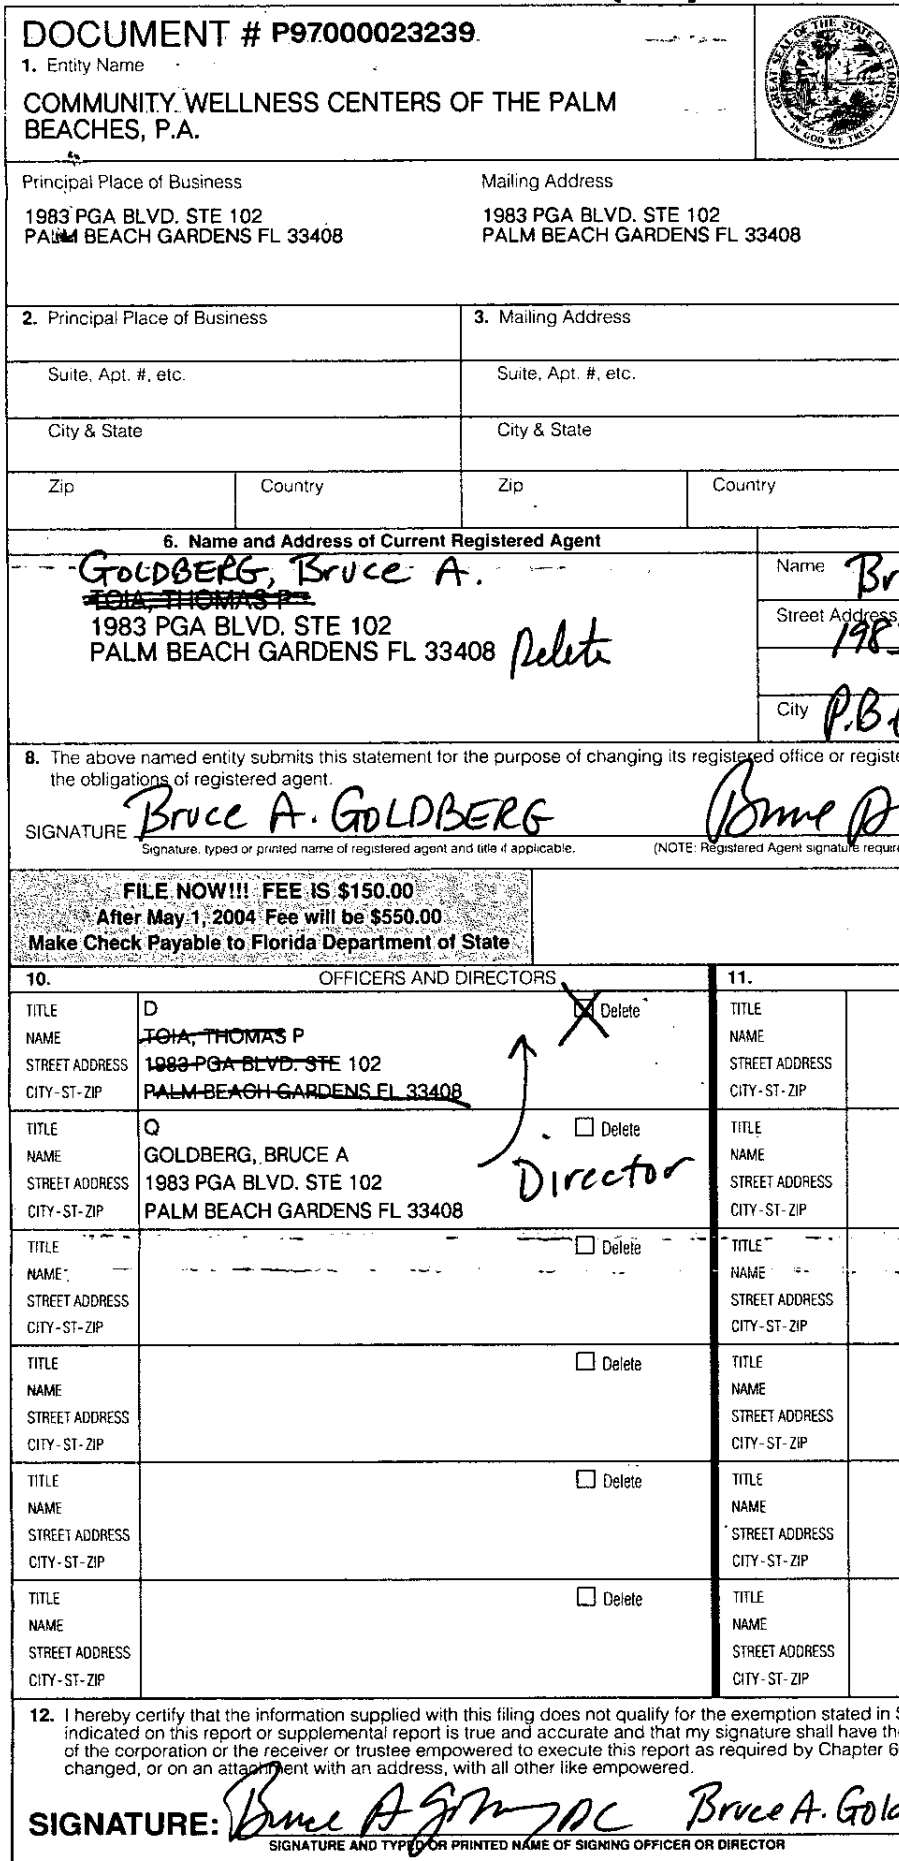 DOCUMENT # P97000023239
1. Entity Name
COMMUNITY WELLNESS CENTERS OF THE PALM
BEACHES, P.A.
GREAT SEAL OF THE STATE OF FLORIDA
IN GOD WE TRUST
Principal Place of Business
1983 PGA BLVD. STE 102
PALM BEACH GARDENS FL 33408
Mailing Address
1983 PGA BLVD. STE 102
PALM BEACH GARDENS FL 33408
2. Principal Place of Business
3. Mailing Address
Suite, Apt. #, etc.
Suite, Apt. #, etc.
City & State
City & State
Zip
Country
Zip
Country
6. Name and Address of Current Registered Agent
GOLDBERG, Bruce A.
TOIA, THOMAS P
1983 PGA BLVD. STE 102
PALM BEACH GARDENS FL 33408
Delete
Name Br
Street Address
198
City P.B.
8. The above named entity submits this statement for the purpose of changing its registered office or registe
the obligations of registered agent.
SIGNATURE Bruce A. GOLDBERG Bruce A
Signature, typed or printed name of registered agent and title if applicable. (NOTE: Registered Agent signature require
FILE NOW!!! FEE IS $150.00
After May 1, 2004 Fee will be $550.00
Make Check Payable to Florida Department of State
10. OFFICERS AND DIRECTORS
11.
TITLE D Delete
NAME TOIA, THOMAS P
STREET ADDRESS 1983 PGA BLVD. STE 102
CITY-ST-ZIP PALM BEACH GARDENS FL 33408
TITLE
NAME
STREET ADDRESS
CITY-ST-ZIP
TITLE Q Delete
NAME GOLDBERG, BRUCE A
STREET ADDRESS 1983 PGA BLVD. STE 102
CITY-ST-ZIP PALM BEACH GARDENS FL 33408
Director
TITLE
NAME
STREET ADDRESS
CITY-ST-ZIP
TITLE Delete
NAME
STREET ADDRESS
CITY-ST-ZIP
TITLE
NAME
STREET ADDRESS
CITY-ST-ZIP
TITLE Delete
NAME
STREET ADDRESS
CITY-ST-ZIP
TITLE
NAME
STREET ADDRESS
CITY-ST-ZIP
TITLE Delete
NAME
STREET ADDRESS
CITY-ST-ZIP
TITLE
NAME
STREET ADDRESS
CITY-ST-ZIP
TITLE Delete
NAME
STREET ADDRESS
CITY-ST-ZIP
TITLE
NAME
STREET ADDRESS
CITY-ST-ZIP
12. I hereby certify that the information supplied with this filing does not qualify for the exemption stated in S
indicated on this report or supplemental report is true and accurate and that my signature shall have the
of the corporation or the receiver or trustee empowered to execute this report as required by Chapter 6
changed, or on an attachment with an address, with all other like empowered.
SIGNATURE: Bruce A DC Bruce A. Gold
SIGNATURE AND TYPED OR PRINTED NAME OF SIGNING OFFICER OR DIRECTOR